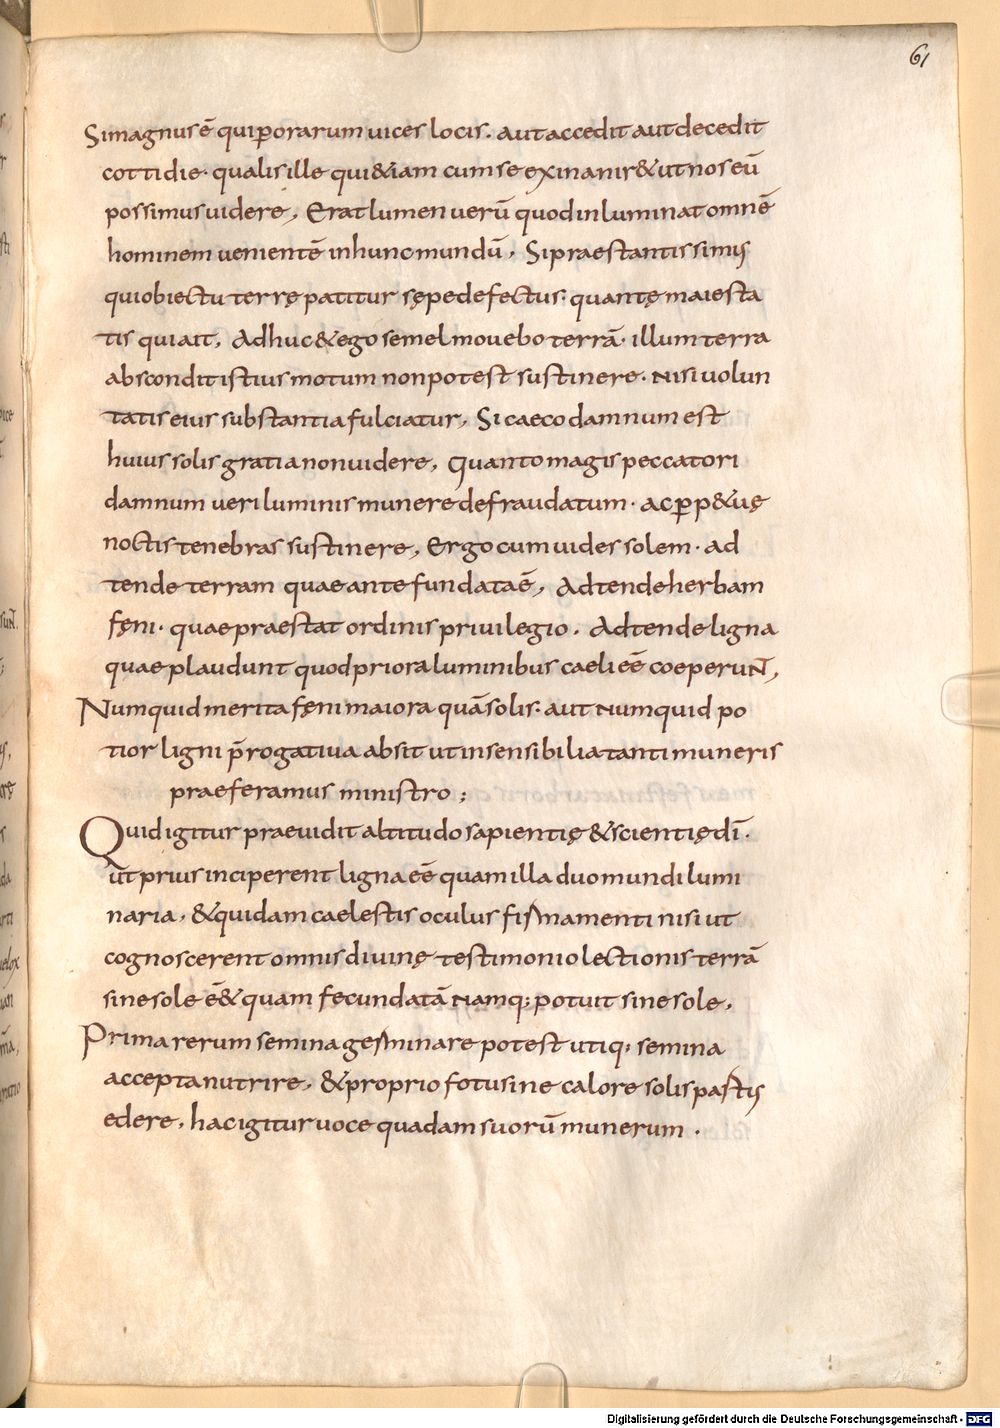 61
Si magnus ē qui ꝑ orarum uices locis. aut accedit aut decedit
cottidie. qualis ille qui &iam cum se exinanir& ut nos eū
possimus uidere, Erat lumen uerū quod inluminat omnē
hominem uenientē in hunc mundū, Si praestantissimus
qui obiectu terrę patitur sępe defectus. quantę maiesta
tis qui ait, Adhuc & ego semel mouebo terrā. illum terra
abscondit istius motum non potest sustinere. Nisi uolun
tatis eius substantia fulciatur, Si caeco damnum est
huius solis gratia non uidere, Quanto magis peccatori
damnum ueri luminis munere defraudatum. ac ꝑp&uę
noctis tenebras sustinere, Ergo cum uides solem. ad
tende terram quae ante fundata ē, Adtende herbam
fęni. quae praestat ordinis priuilegio. Adtende ligna
quae plaudunt quod priora luminibus caeli eē coeperunt,
Numquid merita fęni maiora quā solis. aut Numquid po
tior ligni p̄rogatiua absit ut insensibilia tanti muneris
praeferamus ministro;
Quid igitur praeuidit altitudo sapientię & scientię dī.
ut prius inciperent ligna eē quam illa duo mundi lumi
naria, & quidam caelestis oculus firmamenti nisi ut
cognoscerent omnis diuinę testimonio lectionis terrā
sine sole ē& quam fecundatā Namq; potuit sine sole,
Prima rerum semina germinare potest utiq; semina
accepta nutrire, & proprio fotu sine calore solis pastus
edere, hac igitur uoce quadam suorū munerum .
Digitalisierung gefördert durch die Deutsche Forschungsgemeinschaft - DFG